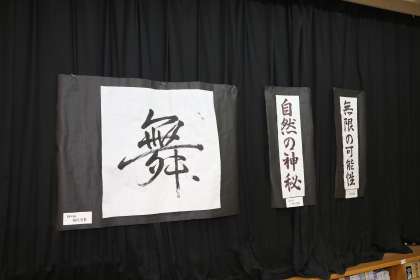 舞
自然の神秘
無限の可能性